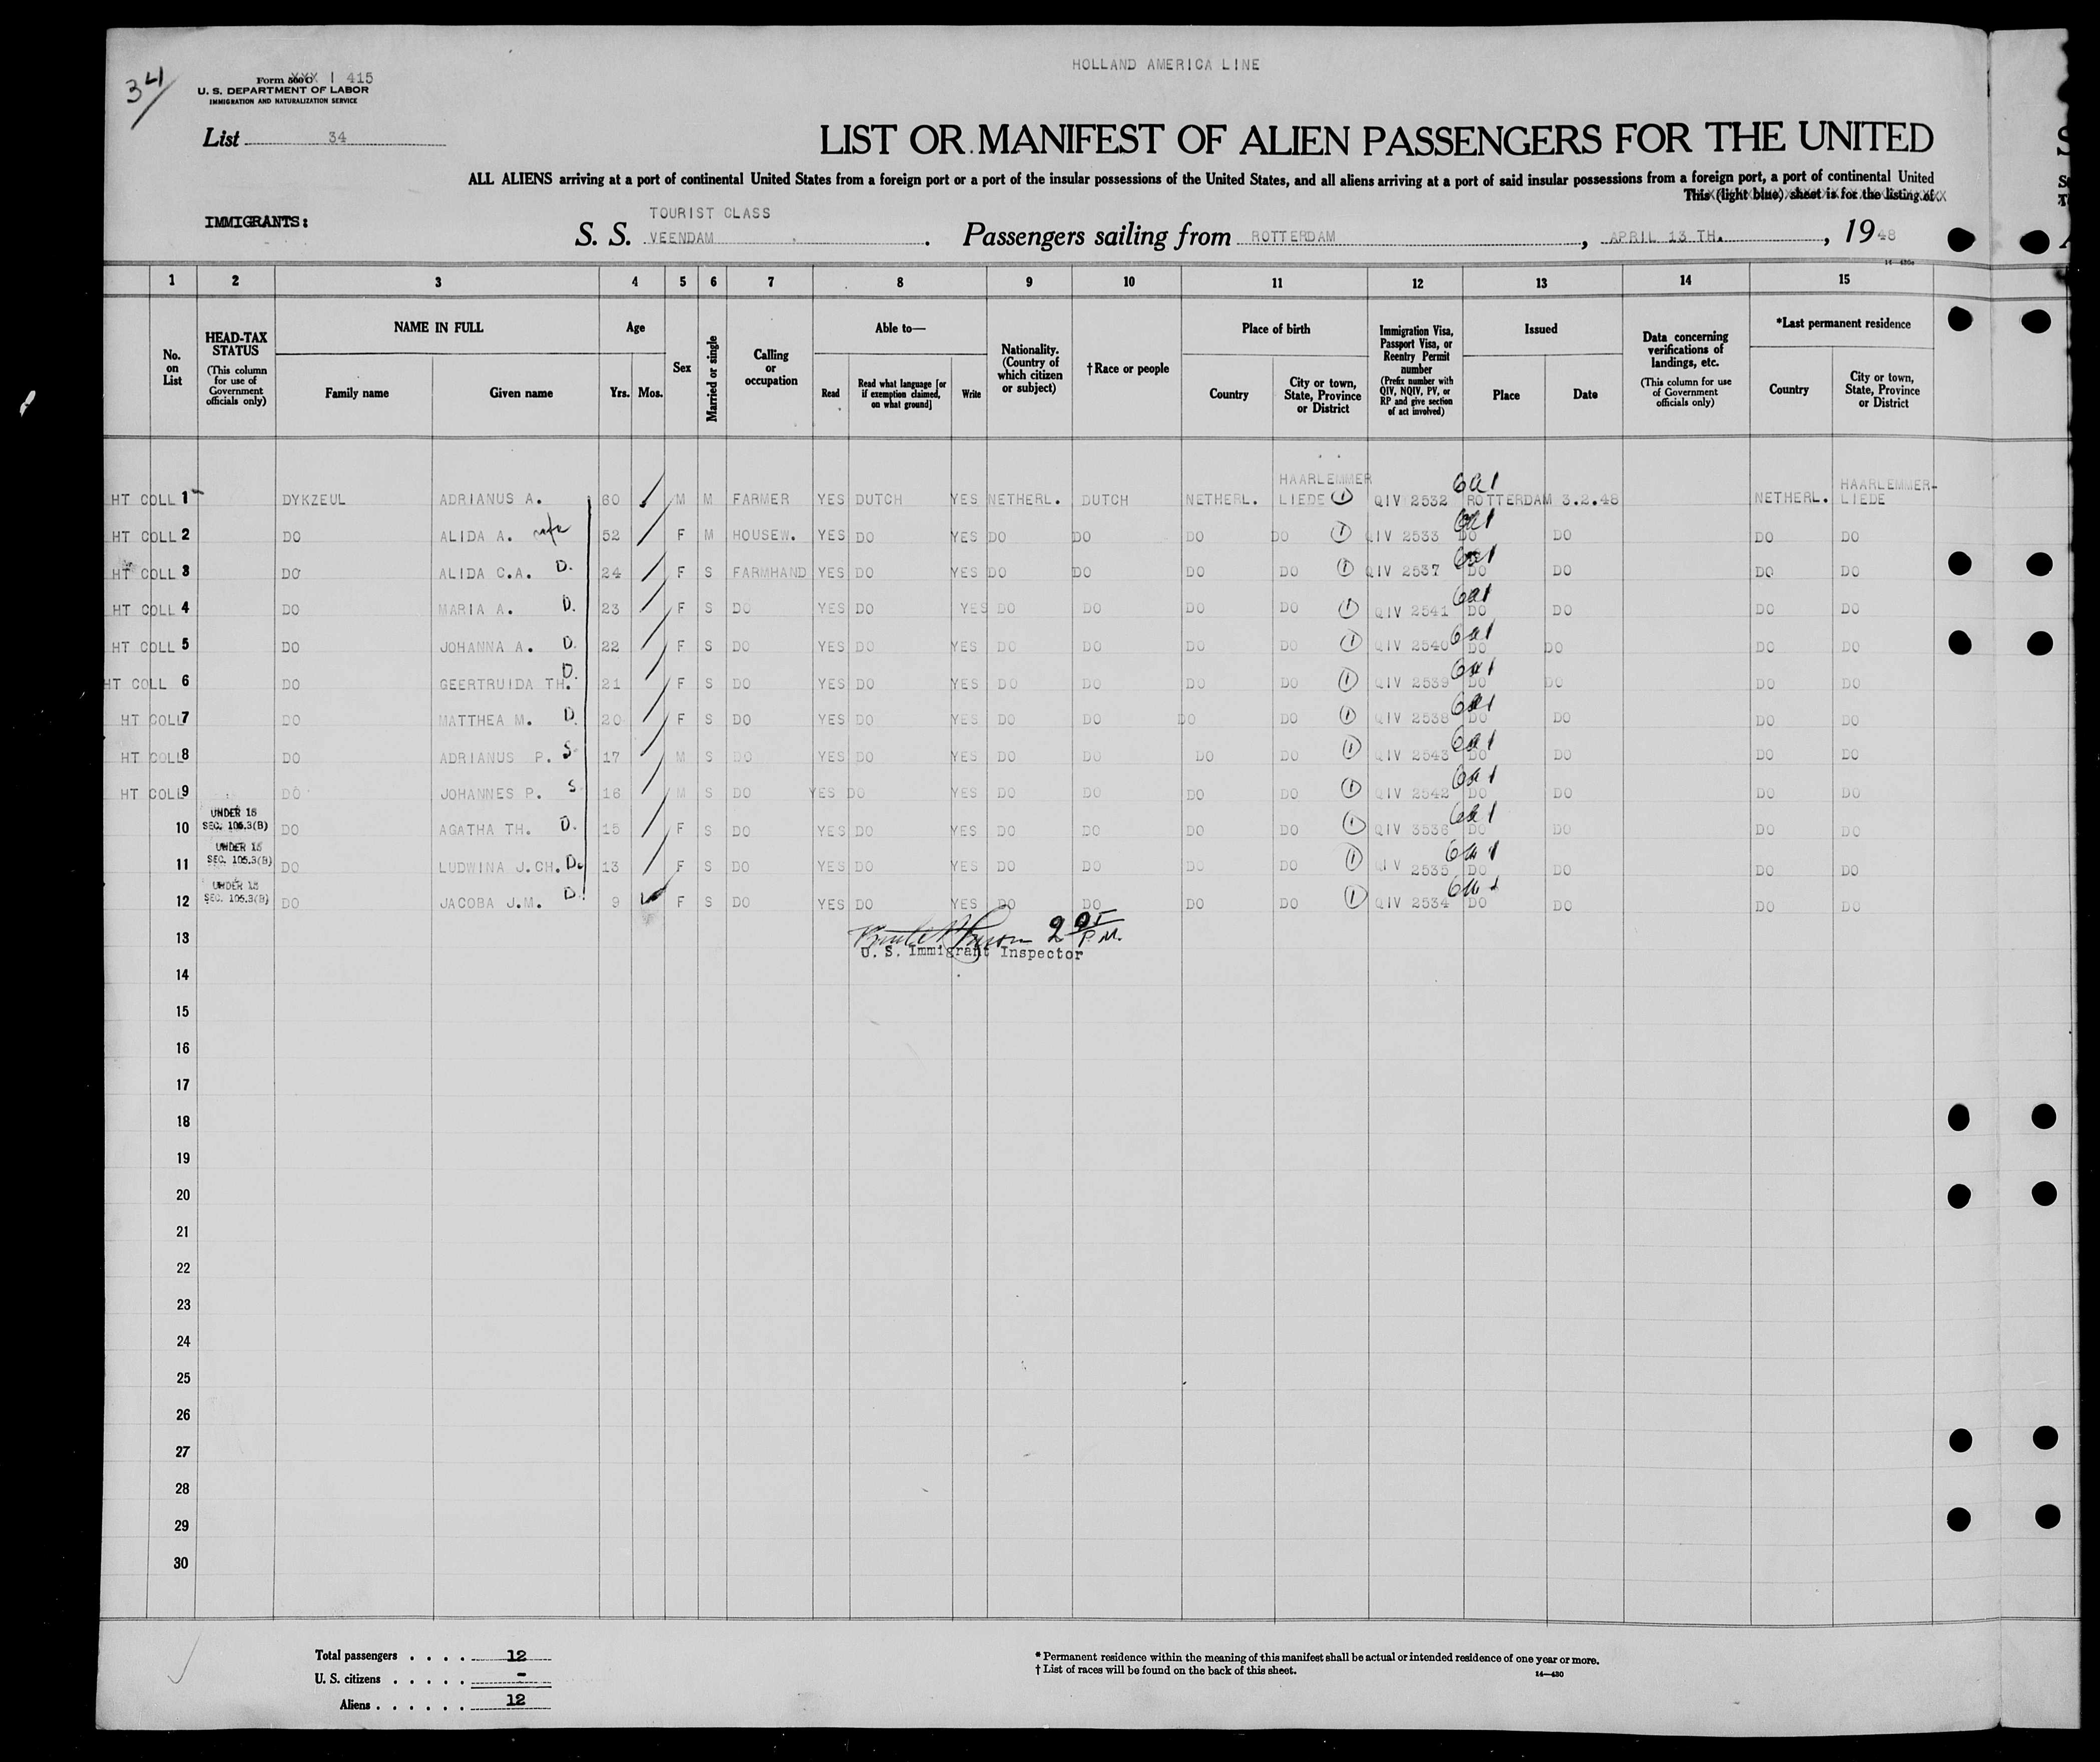 HOLLAND AMERICA LINE
34
Form 500 C XXX I 415
U. S. DEPARTMENT OF LABOR
IMMIGRATION AND NATURALIZATION SERVICE
List 34
LIST OR MANIFEST OF ALIEN PASSENGERS FOR THE UNITED
ALL ALIENS arriving at a port of continental United States from a foreign port or a port of the insular possessions of the United States, and all aliens arriving at a port of said insular possessions from a foreign port, a port of continental United
This (light blue) sheet is for the listing of
IMMIGRANTS:
TOURIST CLASS
S. S. VEENDAM. Passengers sailing from ROTTERDAM, APRIL 13 TH., 1948
1 2 3 4 5 6 7 8 9 10 11 12 13 14 15
No. on List
HEAD-TAX STATUS (This column for use of Government officials only)
NAME IN FULL Family name Given name
Age Yrs. Mos.
Sex
Married or single
Calling or occupation
Able to— Read Read what language [or if exemption claimed, on what ground] Write
Nationality. (Country of which citizen or subject)
†Race or people
Place of birth Country City or town, State, Province or District
Immigration Visa, Passport Visa, or Reentry Permit number (Prefix number with QIV, NQIV, PV, or RP and give section of act involved)
Issued Place Date
Data concerning verifications of landings, etc. (This column for use of Government officials only)
*Last permanent residence Country City or town, State, Province or District
HT COLL 1 DYKZEUL ADRIANUS A. 60 M M FARMER YES DUTCH YES NETHERL. DUTCH NETHERL. HAARLEMMER LIEDE 1 QIV 2532 6a1 ROTTERDAM 3.2.48 NETHERL. HAARLEMMER-LIEDE
HT COLL 2 DO ALIDA A. wife 52 F M HOUSEW. YES DO YES DO DO DO DO 1 QIV 2533 6a1 DO DO DO DO
HT COLL 3 DO ALIDA C.A. D. 24 F S FARMHAND YES DO YES DO DO DO DO 1 QIV 2537 6a1 DO DO DO DO
HT COLL 4 DO MARIA A. D. 23 F S DO YES DO YES DO DO DO DO 1 QIV 2541 6a1 DO DO DO DO
HT COLL 5 DO JOHANNA A. D. 22 F S DO YES DO YES DO DO DO DO 1 QIV 2540 6a1 DO DO DO DO
HT COLL 6 DO GEERTRUIDA TH. D. 21 F S DO YES DO YES DO DO DO DO 1 QIV 2539 6a1 DO DO DO DO
HT COLL 7 DO MATTHEA M. D. 20 F S DO YES DO YES DO DO DO DO 1 QIV 2538 6a1 DO DO DO DO
HT COLL 8 DO ADRIANUS P. S 17 M S DO YES DO YES DO DO DO DO 1 QIV 2543 6a1 DO DO DO DO
HT COLL 9 DO JOHANNES P. S 16 M S DO YES DO YES DO DO DO DO 1 QIV 2542 6a1 DO DO DO DO
10 UNDER 16 SEC. 105.3(B) DO AGATHA TH. D. 15 F S DO YES DO YES DO DO DO DO 1 QIV 3536 6a1 DO DO DO DO
11 UNDER 16 SEC. 105.3(B) DO LUDWINA J.CH. D. 13 F S DO YES DO YES DO DO DO DO 1 QIV 2535 6a1 DO DO DO DO
12 UNDER 16 SEC. 105.3(B) DO JACOBA J.M. D. 9 F S DO YES DO YES DO DO DO DO 1 QIV 2534 6a1 DO DO DO DO
13 2 05 P.M.
U. S. Immigrant Inspector
14
15
16
17
18
19
20
21
22
23
24
25
26
27
28
29
30
Total passengers . . . . 12
U. S. citizens . . . . . -
Aliens . . . . . . 12
* Permanent residence within the meaning of this manifest shall be actual or intended residence of one year or more.
† List of races will be found on the back of this sheet. 14—430